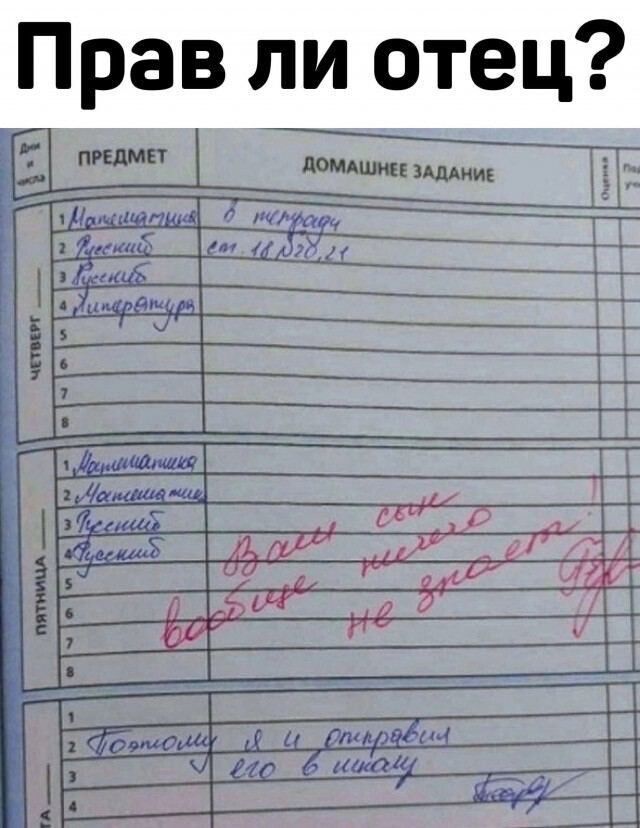 Прав ли отец?
Дни и числа ПРЕДМЕТ ДОМАШНЕЕ ЗАДАНИЕ Оценка
ЧЕТВЕРГ
1 Математика в тетради
2 Русский ст. 18 №20,21
3 Русский
4 Литература
5
6
7
8
ПЯТНИЦА
1 Математика
2 Математика
3 Русский
4 Русский
5
6
7
8
Ваш сын
вообще ничего
не знает!
1
2 Поэтому я и отправил
3 его в школу
4